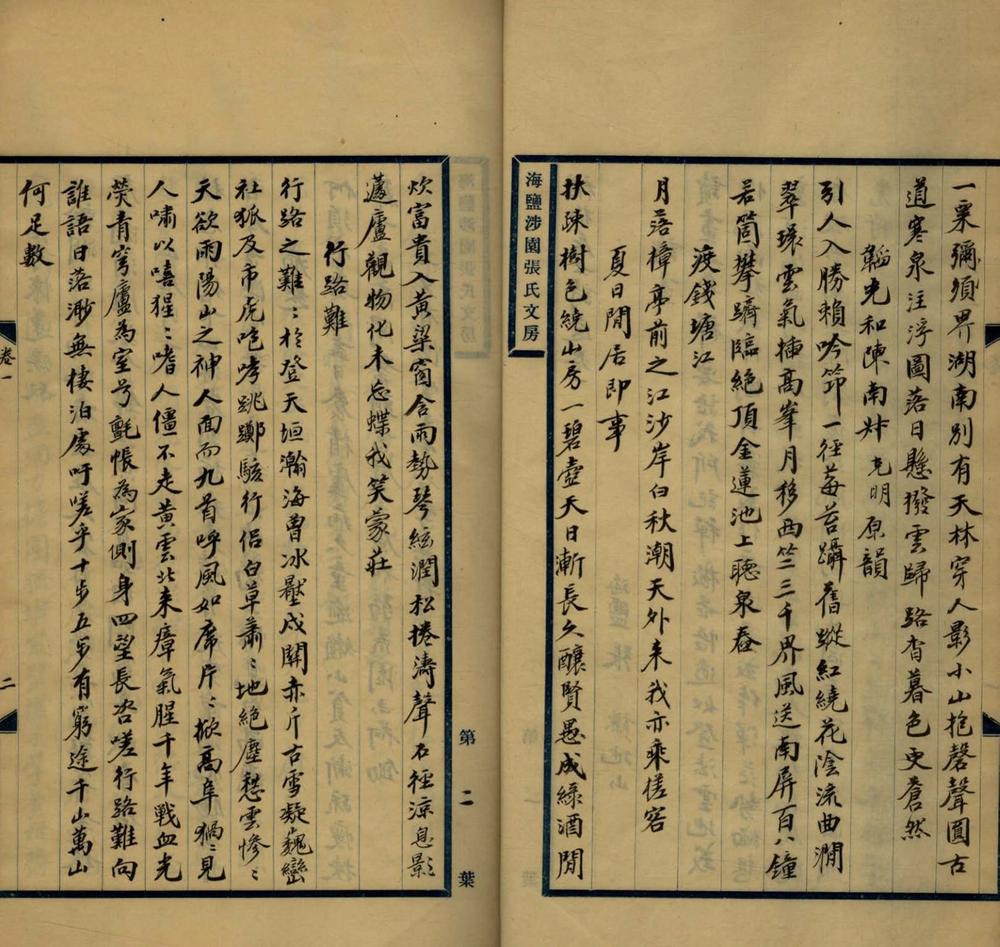 一粟彌須界湖南別有天林穿人影小山抱磬聲圓古
道寒泉注浮圖落日懸撥雲歸路杳暮色更蒼然
韜光和陳南州克明原韻
引人入勝賴吟笻一徑莓苔躡舊蹤紅繞花陰流曲澗
翠環雲氣插高峯月移西竺三千界風送南屏百八鐘
若箇攀躋臨絕頂金蓮池上聽泉舂
渡錢塘江
月落樟亭前之江沙岸白秋潮天外來我亦乘槎客
夏日閒居即事
扶疎樹色繞山房一碧壺天日漸長久釀賢愚成緑酒閒
海鹽涉園張氏文房
第二葉
炊富貴入黃粱窗含雨勢琴絃潤松捲濤聲石徑涼息影
蘧廬觀物化未忘蝶我笑蒙莊
行路難
行路之難:於登天垣瀚海曾冰壓戍關赤斤古雪凝巍巒
社狐及市虎咆哮跳躑駭行侶白草蕭:地絕塵愁雲慘:
天欲雨陽山之神人面而九首呼風如席片:掀高阜猲:見
人嘯以嘻猩:嗜人僵不走黃雲北來瘴氣腥千年戰血光
熒青穹廬為室兮氈帳為家側身四望長咨嗟行路難向
誰語日落渺無棲泊處吁嗟乎十步五步有窮途千山萬山
何足數
卷一
二